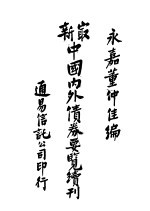 永嘉董仲佳編
最新中國內外債券要覽續刊
通易信託公司印行